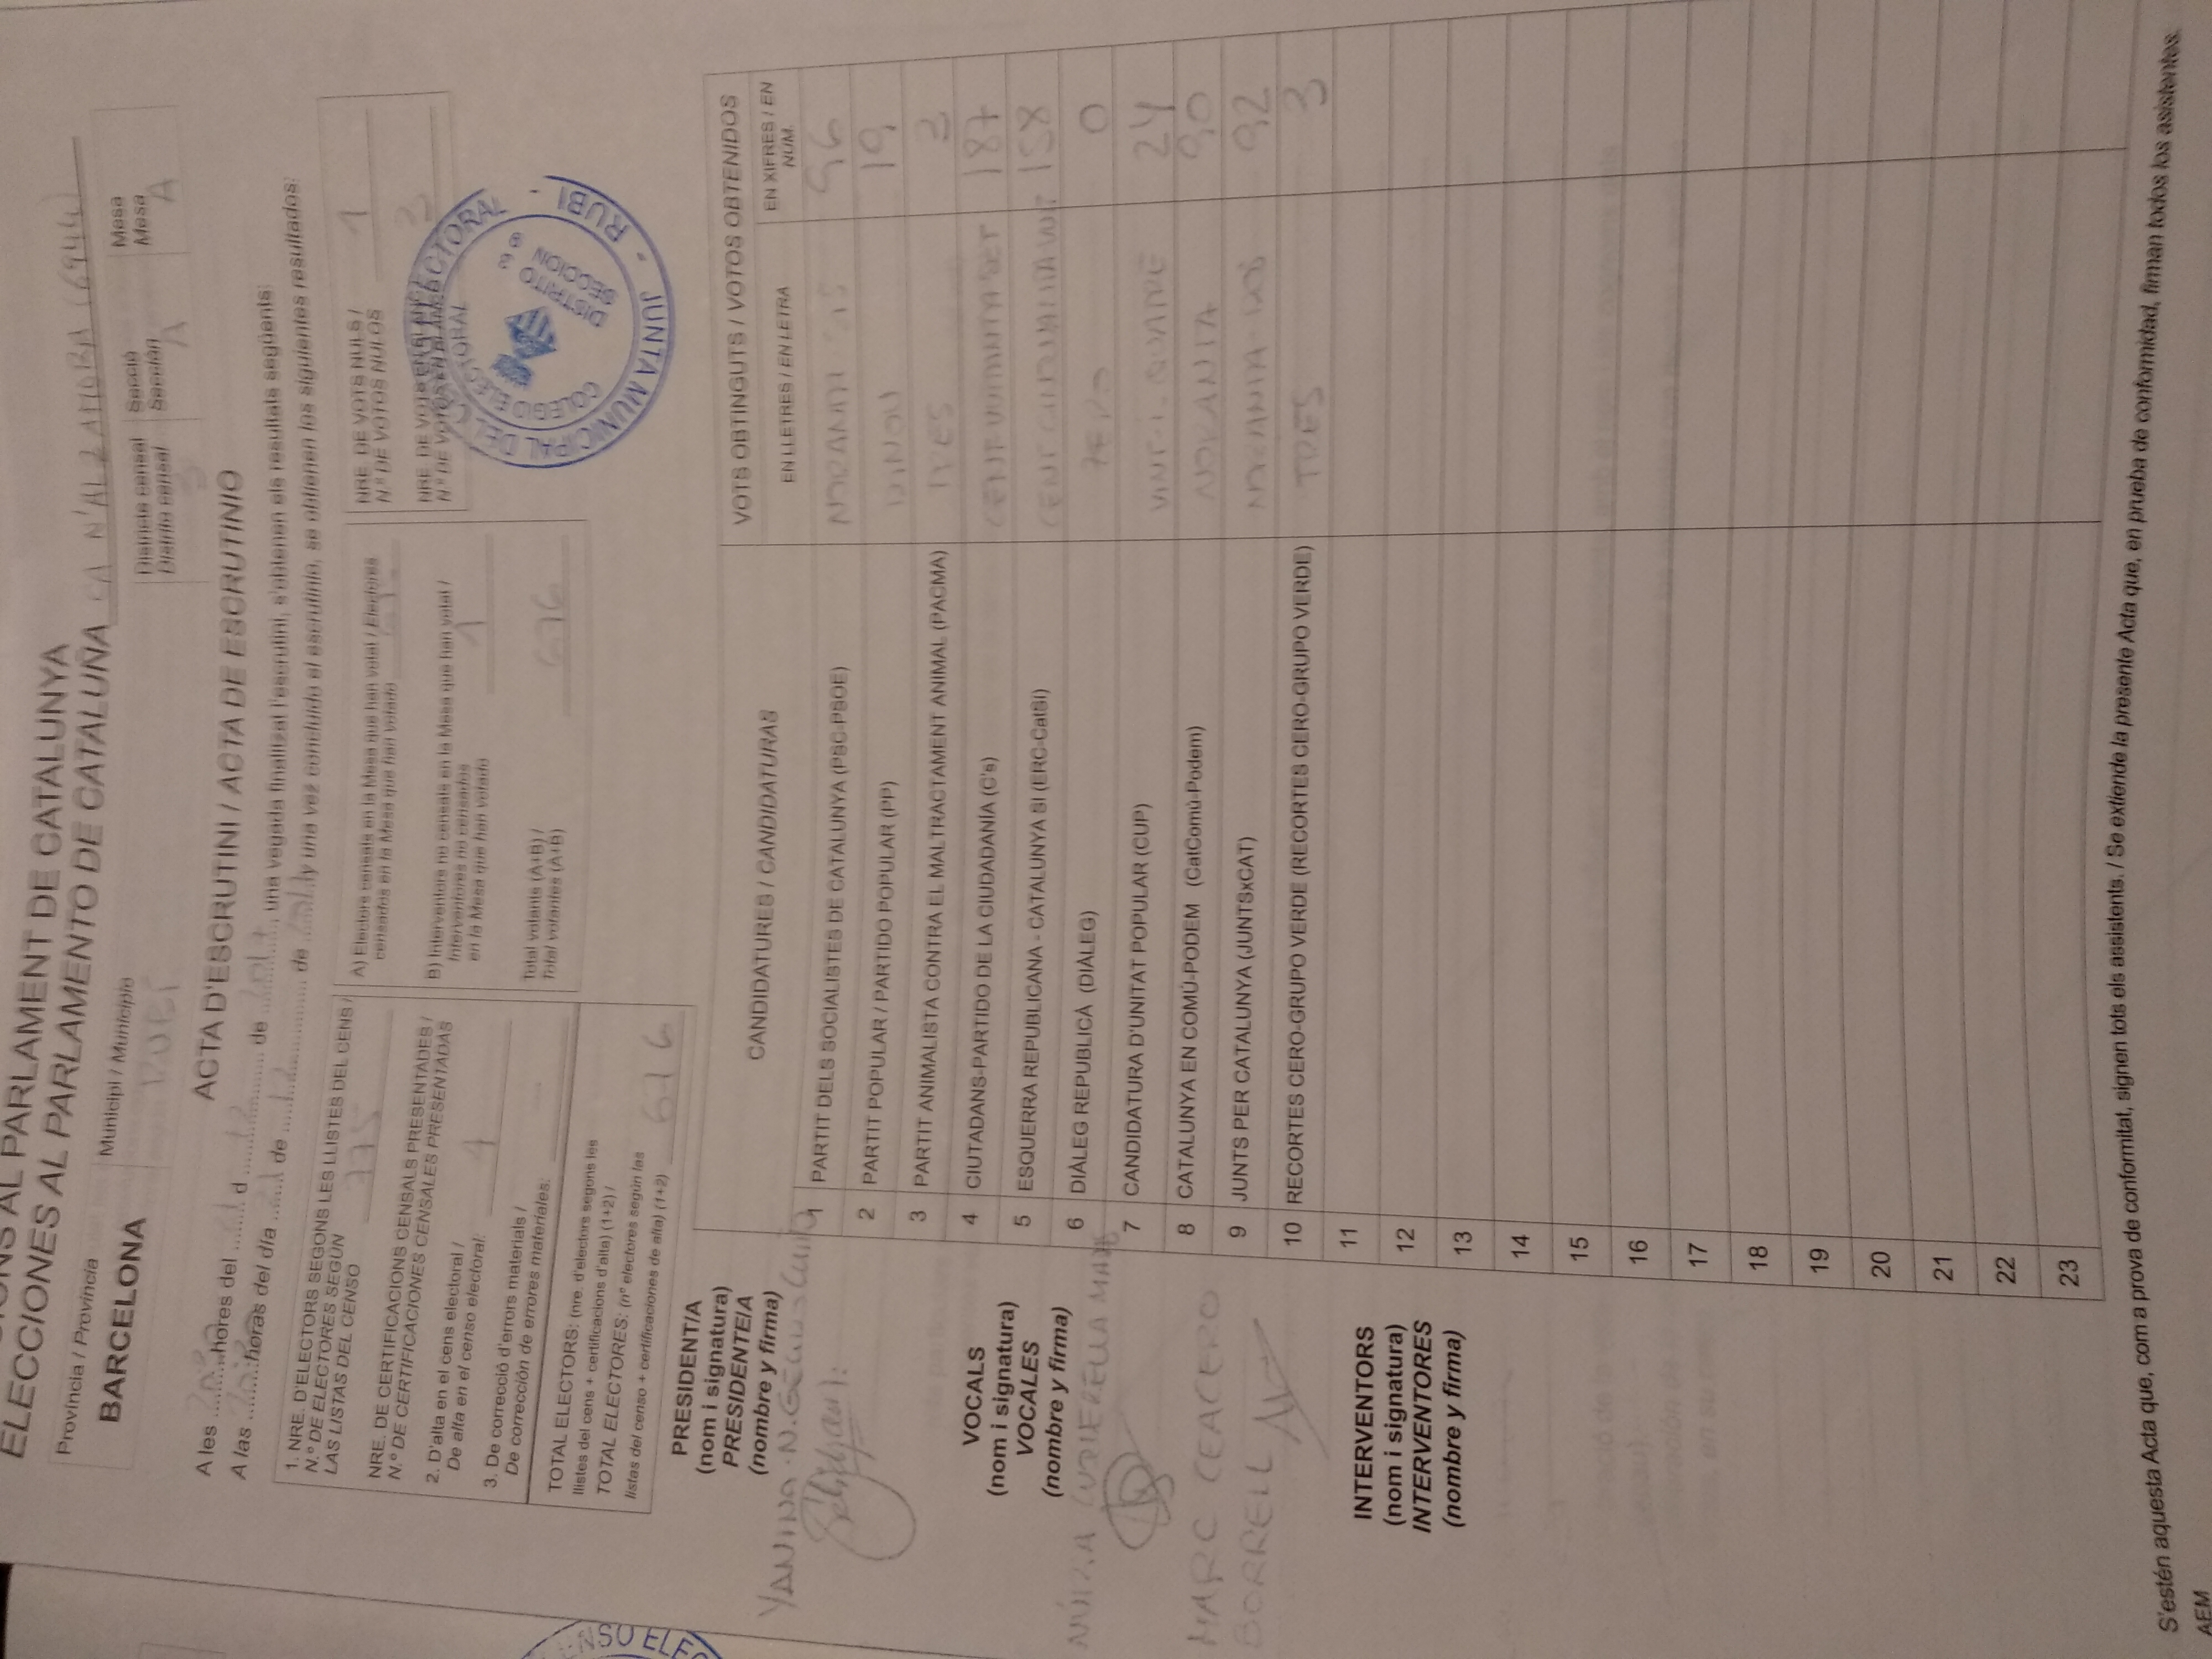 AL PARLAMENT DE CATALUNYA
ELECCIONES AL PARLAMENTO DE CATALUÑA CA N'ALZAMORA (6944)
Província / Provincia
BARCELONA
Municipi / Municipio
RUBÍ
Districte censal
Distrito censal
3
Secció
Sección
A
Mesa
Mesa
A
ACTA D'ESCRUTINI / ACTA DE ESCRUTINIO
A les hores del d de , una vegada finalitzat l'escrutini, s'obtenen els resultats següents:
A las horas del día de de y una vez concluido el escrutinio, se obtienen los siguientes resultados:
1. NRE. D'ELECTORS SEGONS LES LLISTES DEL CENS /
N.º DE ELECTORES SEGÚN
LAS LISTAS DEL CENSO 775
NRE. DE CERTIFICACIONS CENSALS PRESENTADES /
N.º DE CERTIFICACIONES CENSALES PRESENTADAS
2. D'alta en el cens electoral /
De alta en el censo electoral: 1
3. De correcció d'errors materials /
De corrección de errores materiales: —
TOTAL ELECTORS: (nre. d'electors segons les
llistes del cens + certificacions d'alta) (1+2) /
TOTAL ELECTORES: (nº electores según las
listas del censo + certificaciones de alta) (1+2) 676
A) Electors censats en la Mesa que han votat / Electores
censados en la Mesa que han votado
B) Interventors no censats en la Mesa que han votat /
Interventores no censados
en la Mesa que han votado 1
Total votants (A+B) /
Total votantes (A+B) 676
NRE. DE VOTS NULS /
N.º DE VOTOS NULOS 1
NRE. DE VOTS EN BLANC /
N.º DE VOTOS EN BLANCO 3
JUNTA MUNICIPAL DEL CENSO ELECTORAL - RUBI -
COLEGIO ELECTORAL
DISTRITO 3
SECCION 8
PRESIDENT/A
(nom i signatura)
PRESIDENTE/A
(nombre y firma)
YANINA N.
VOCALS
(nom i signatura)
VOCALES
(nombre y firma)
NÚRIA
MARC CEACERO
BORRELL
INTERVENTORS
(nom i signatura)
INTERVENTORES
(nombre y firma)
CANDIDATURES / CANDIDATURAS
VOTS OBTINGUTS / VOTOS OBTENIDOS
EN LLETRES / EN LETRA
EN XIFRES / EN
NÚM.
1 PARTIT DELS SOCIALISTES DE CATALUNYA (PSC-PSOE) NORANTA SIS 96
2 PARTIT POPULAR / PARTIDO POPULAR (PP) DINOU 19
3 PARTIT ANIMALISTA CONTRA EL MALTRACTAMENT ANIMAL (PACMA) TRES 3
4 CIUTADANS-PARTIDO DE LA CIUDADANÍA (C's) CENT VUITANTA SET 187
5 ESQUERRA REPUBLICANA - CATALUNYA SI (ERC-CatSí) CENT CINQUANTA VUIT 158
6 DIÀLEG REPUBLICÀ (DIÀLEG) ZERO 0
7 CANDIDATURA D'UNITAT POPULAR (CUP) VINT-I-QUATRE 24
8 CATALUNYA EN COMÚ-PODEM (CatComú-Podem) NORANTA 90
9 JUNTS PER CATALUNYA (JUNTSxCAT) NORANTA-DOS 92
10 RECORTES CERO-GRUPO VERDE (RECORTES CERO-GRUPO VERDE) TRES 3
11
12
13
14
15
16
17
18
19
20
21
22
23
S'estén aquesta Acta que, com a prova de conformitat, signen tots els assistents. / Se extiende la presente Acta que, en prueba de conformidad, firman todos los asistentes.
AEM